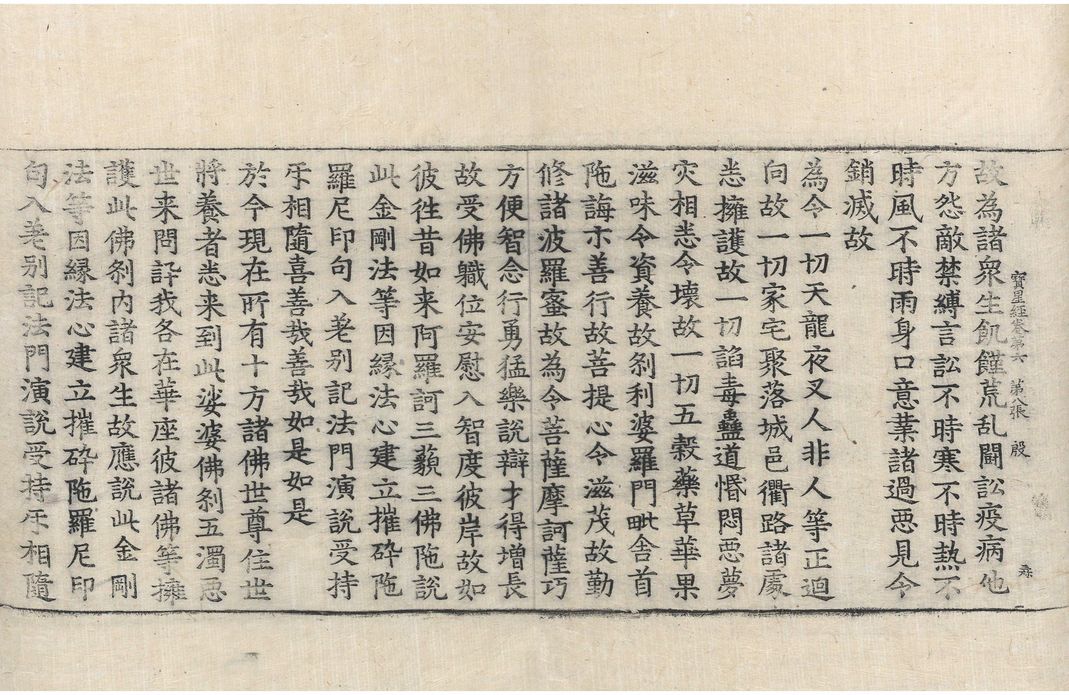 寶星經卷第六 第八張 殷
故為諸衆生飢饉荒乱鬪訟疫病他
方怨敵禁縛言訟不時寒不時熱不
時風不時雨身口意葉諸過惡見令
銷滅故
為令一切天龍夜叉人非人等正迴
向故一切家宅聚落城邑衢路諸處
悉擁護故一切諂毒蠱道惛悶惡夢
灾相悉令壞故一切五穀藥草華果
滋味令資養故刹利婆羅門毗舍首
陁誨示善行故菩提心令滋茂故勤
修諸波羅蜜故為令菩薩摩訶薩巧
方便智念行勇猛樂說辯才得增長
故受佛職位安慰入智度彼岸故如
彼徃昔如来阿羅訶三藐三佛陁說
此金剛法等因緣法心建立摧碎陁
羅尼印句入差别記法門演說受持
乎相隨喜善哉善哉如是如是
於今現在所有十方諸佛世尊住世
將養者悉来到此娑婆佛刹五濁惡
世来問訊我各在華座彼諸佛等擁
護此佛刹內諸衆生故應說此金剛
法等因緣法心建立摧碎陁羅尼印
句入差别記法門演說受持乎相隨